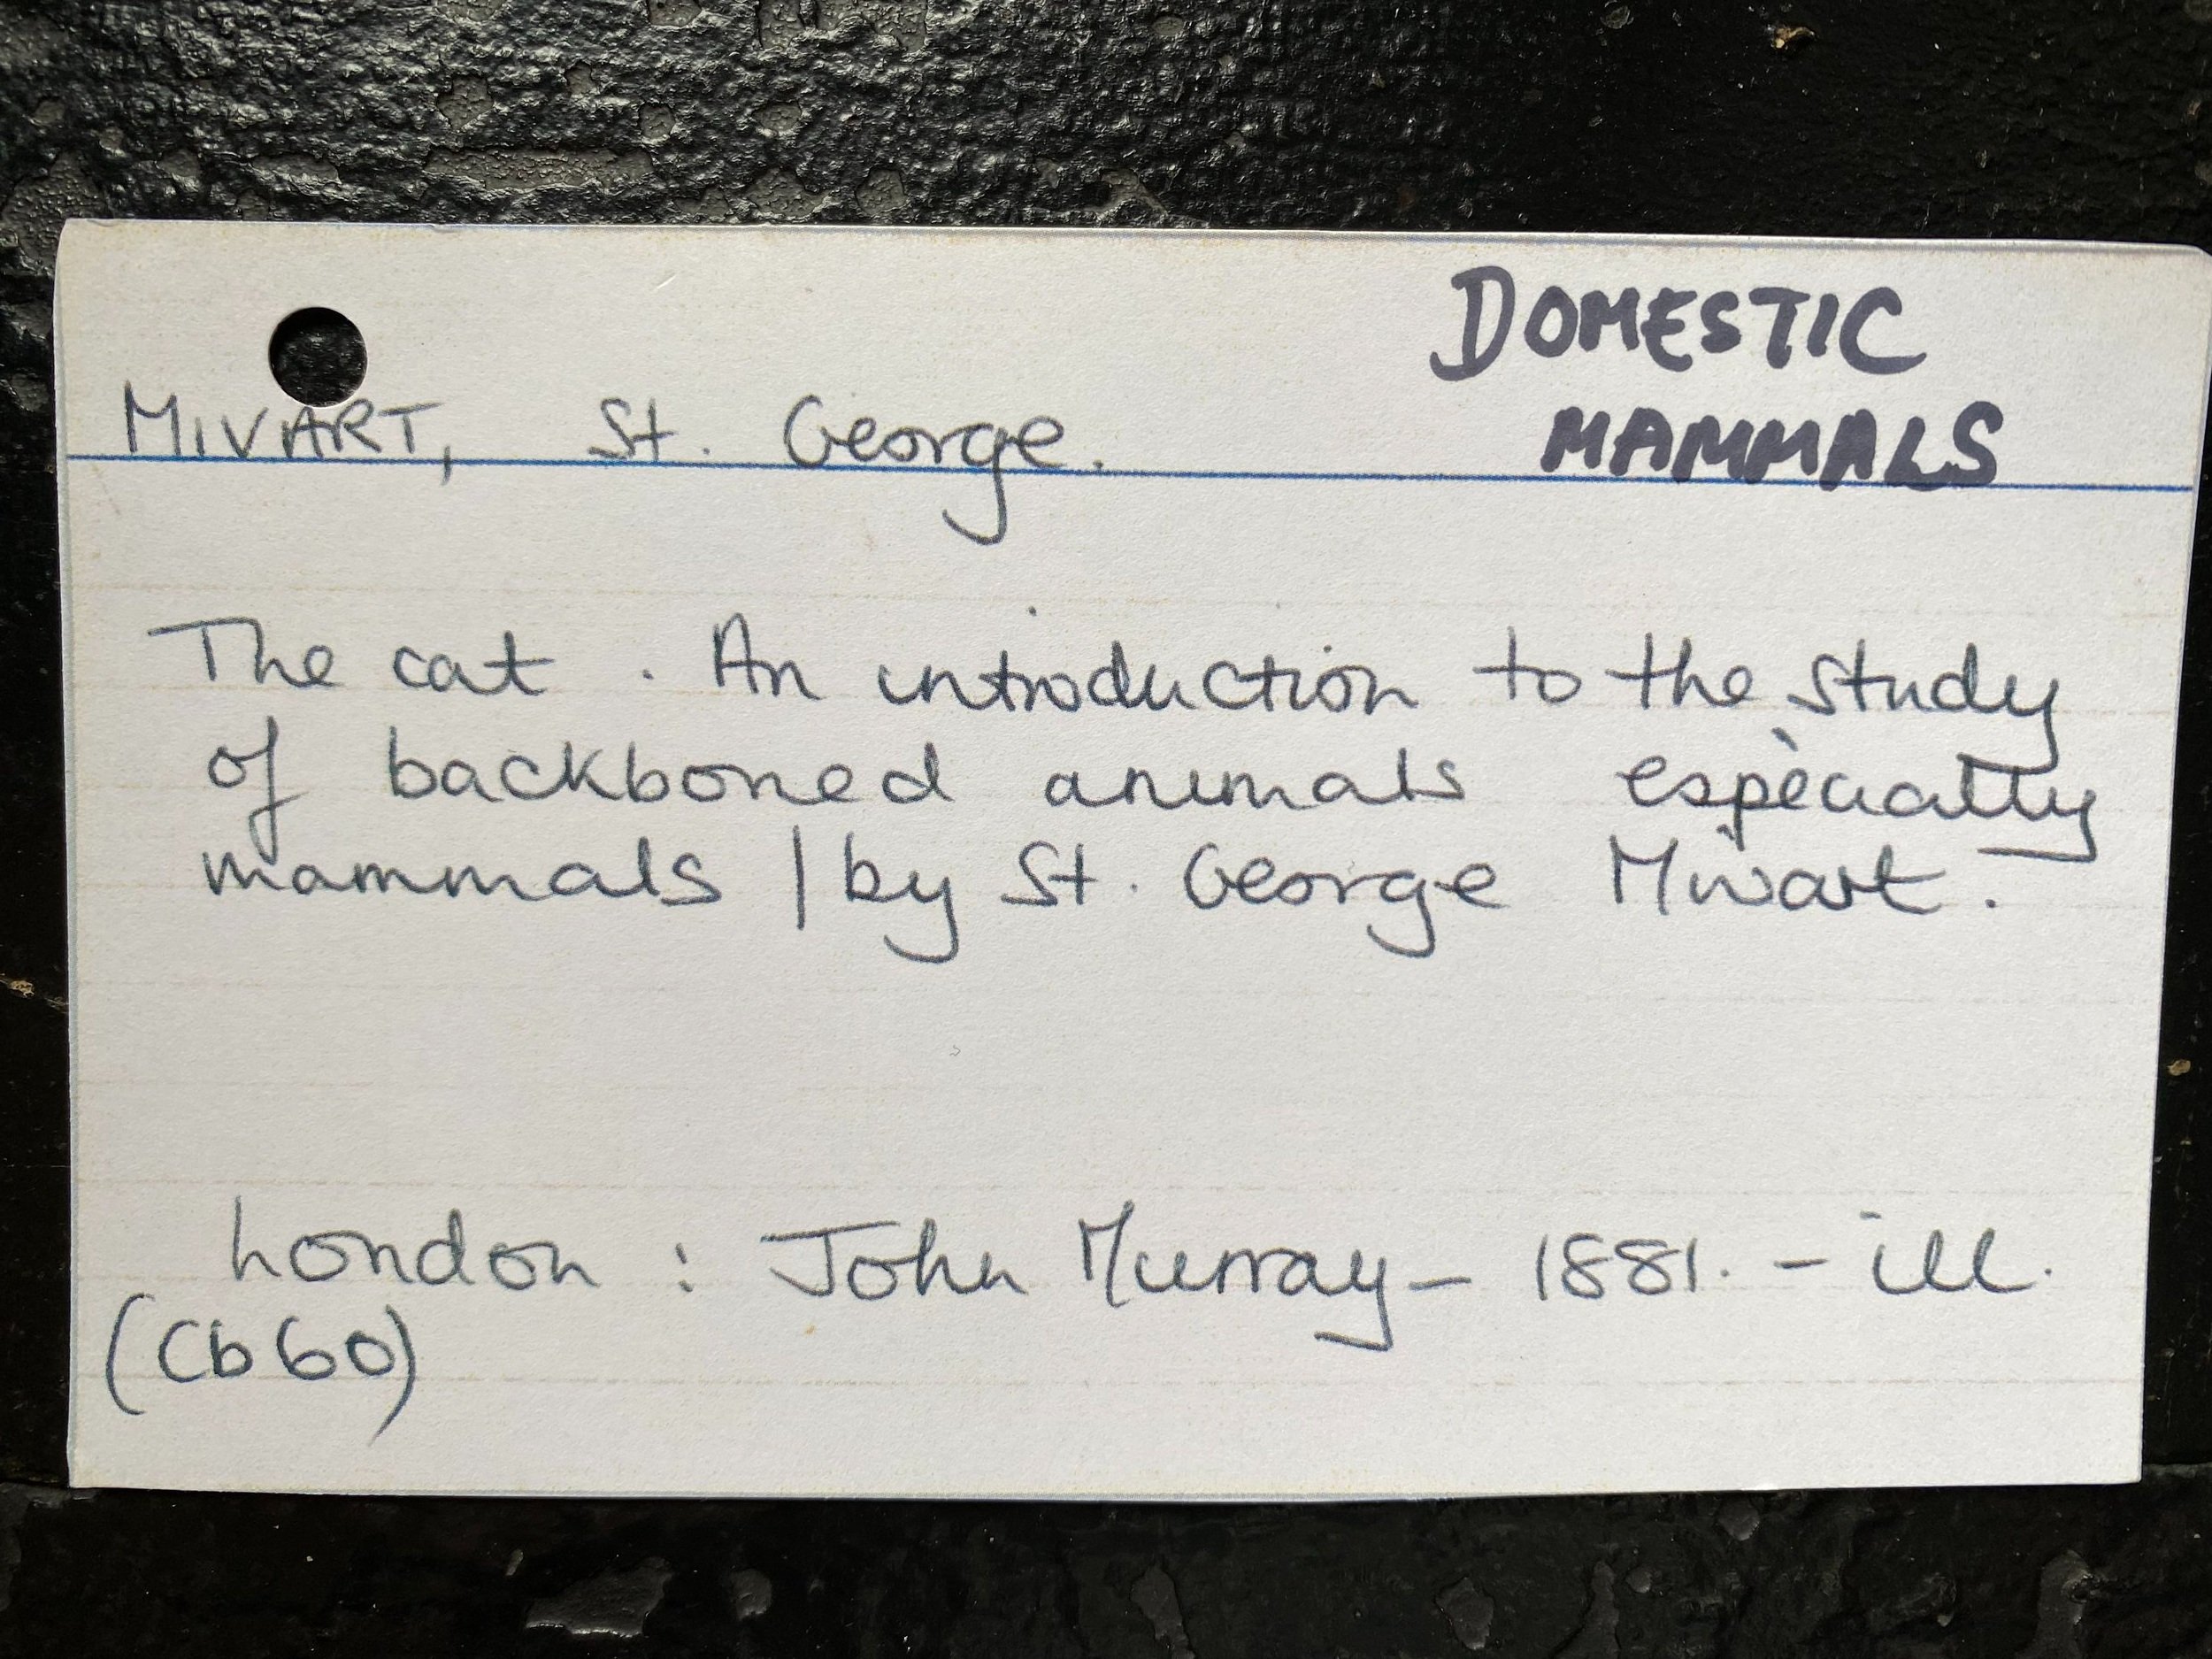 DOMESTIC
MAMMALS
MIVART, St. George.
The cat. An introduction to the study
of backboned animals especially
mammals / by St. George Mivart.
London : John Murray - 1881. - ill.
(Cb60)